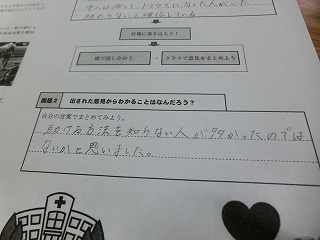 付箋に書き出そう！
班で話し合おう
クラスで意見をまとめよう
課題2 出された意見からわかることはなんだろう？
自分の言葉でまとめてみよう。
助ける方法を知らない人が多かったのでは
ないかと思いました。